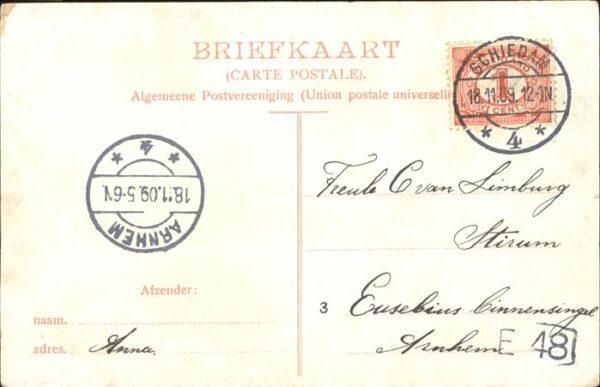 BRIEFKAART
(CARTE POSTALE).
Algemeene Postvereeniging (Union postale universelle
SCHIEDAM
18.11.09. 12-1N
* 4 *
1
CENT
* 4 *
18.11.09. 5-6N
ARNHEM
Freule C van Limburg
Stirum
3 Eusebius binnensingel
Arnhem
E 48
Afzender:
naam.
adres. Anna.